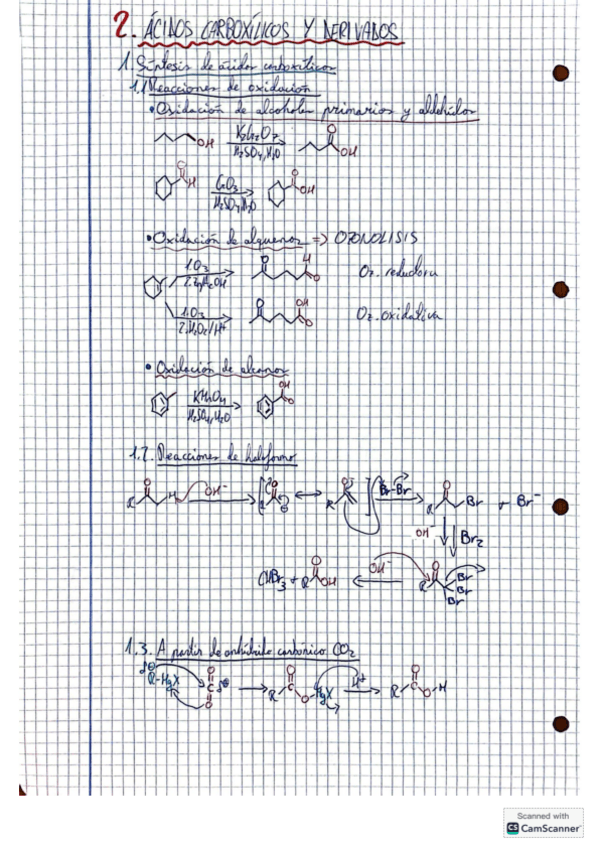 2. ÁCIDOS CARBOXÍLICOS Y DERIVADOS
1. Síntesis de ácidos carboxílicos
1.1. Reacciones de oxidación
• Oxidación de alcoholes primarios y aldehídos
OH K2Cr2O7 O
H2SO4, H2O OH
O
H CrO3 O
H2SO4, H2O OH
• Oxidación de alquenos => OZONOLISIS
1. O3 O H O Oz. reductora
2. Zn/AcOH
1. O3 O OH O Oz. oxidativa
2. H2O2/H+
• Oxidación de alcanos
KMnO4 OH
H2SO4, H2O O
1.2. Reacciones de haloformo
O R H OH- O R O Br-Br O R Br + Br-
OH- Br2
CHBr3 + R O OH OH- O R Br
Br
Br
1.3. A partir de anhídrido carbónico CO2
R-MgX O C O R C O O MgX H+ R C O O H
Scanned with
CS CamScanner